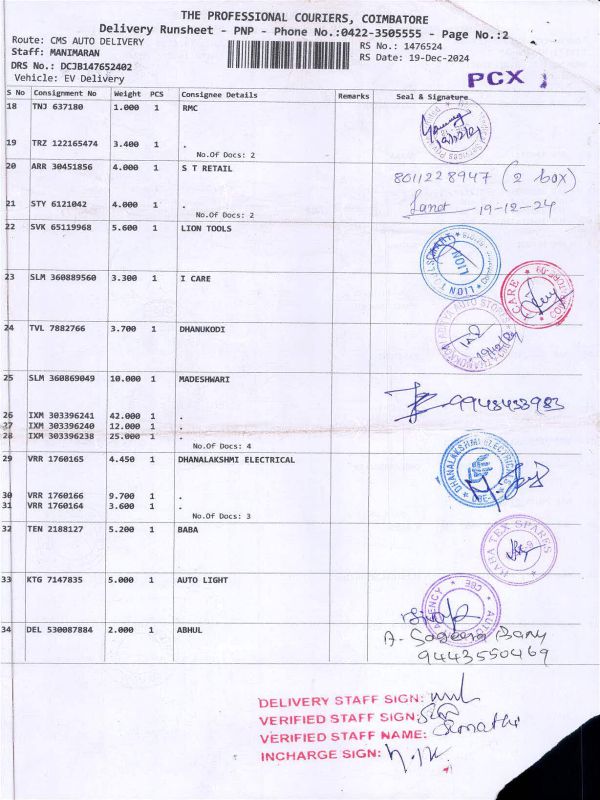 THE PROFESSIONAL COURIERS, COIMBATORE
Delivery Runsheet - PNP - Phone No.:0422-3505555 - Page No.:2
Route: CMS AUTO DELIVERY
Staff: MANIMARAN
DRS No.: DCJB147652402
Vehicle: EV Delivery
RS No.: 1476524
RS Date: 19-Dec-2024
PCX
S No Consignment No Weight PCS Consignee Details Remarks Seal & Signature
18 TNJ 637180 1.000 1 RMC
19 TRZ 122165474 3.400 1 .
No.Of Docs: 2
20 ARR 30451856 4.000 1 S T RETAIL
8011228947 (2 box)
21 STY 6121042 4.000 1 .
19-12-24
No.Of Docs: 2
22 SVK 65119968 5.600 1 LION TOOLS
LION
23 SLM 360889560 3.300 1 I CARE
CARE
24 TVL 7882766 3.700 1 DHANUKODI
19/12/24
25 SLM 360869049 10.000 1 MADESHWARI
9943433983
26 IXM 303396241 42.000 1 .
27 IXM 303396240 12.000 1 .
28 IXM 303396238 25.000 1 .
No.Of Docs: 4
29 VRR 1760165 4.450 1 DHANALAKSHMI ELECTRICAL
DHANALAKSHMI ELECTRICALS
CBE
30 VRR 1760166 9.700 1 .
31 VRR 1760164 3.600 1 .
No.Of Docs: 3
32 TEN 2188127 5.200 1 BABA
BABA TEX SPARES
33 KTG 7147835 5.000 1 AUTO LIGHT
AUTO
AGENCY
CBE
34 DEL 530087884 2.000 1 ABHUL
A. Sageera Banu
9443550469
DELIVERY STAFF SIGN:
VERIFIED STAFF SIGN:
VERIFIED STAFF NAME:
INCHARGE SIGN: